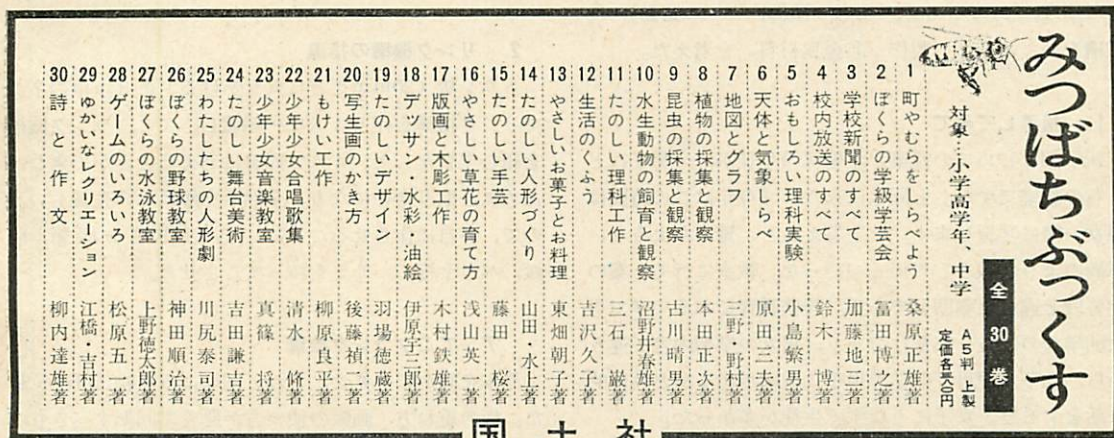 みつばちぶっくす
全30巻
対象…小学高学年、中学
A5判 上製
定価各三八〇円
1 町やむらをしらべよう 桑原正雄著
2 ぼくらの学級学芸会 富田博之著
3 学校新聞のすべて 加藤地三著
4 校内放送のすべて 鈴木 博著
5 おもしろい理科実験 小島繁男著
6 天体と気象しらべ 原田三夫著
7 地図とグラフ 三野・野村著
8 植物の採集と観察 本田正次著
9 昆虫の採集と観察 古川晴男著
10 水生動物の飼育と観察 沼野井春雄著
11 たのしい理科工作 三石 巌著
12 生活のくふう 吉沢久子著
13 やさしいお菓子とお料理 東畑朝子著
14 たのしい人形づくり 山田・水上著
15 たのしい手芸 藤田 桜著
16 やさしい草花の育て方 浅山英一著
17 版画と木彫工作 木村鉄雄著
18 デッサン・水彩・油絵 伊原宇三郎著
19 たのしいデザイン 羽場徳蔵著
20 写生画のかき方 後藤禎二著
21 もけい工作 柳原良平著
22 少年少女合唱歌集 清水 脩著
23 少年少女音楽教室 真篠 将著
24 たのしい舞台美術 吉田謙吉著
25 わたしたちの人形劇 川尻泰司著
26 ぼくらの野球教室 神田順治著
27 ぼくらの水泳教室 上野徳太郎著
28 ゲームのいろいろ 松原五一著
29 ゆかいなレクリエーション 江橋・吉村著
30 詩と作文 柳内達雄著
国土社